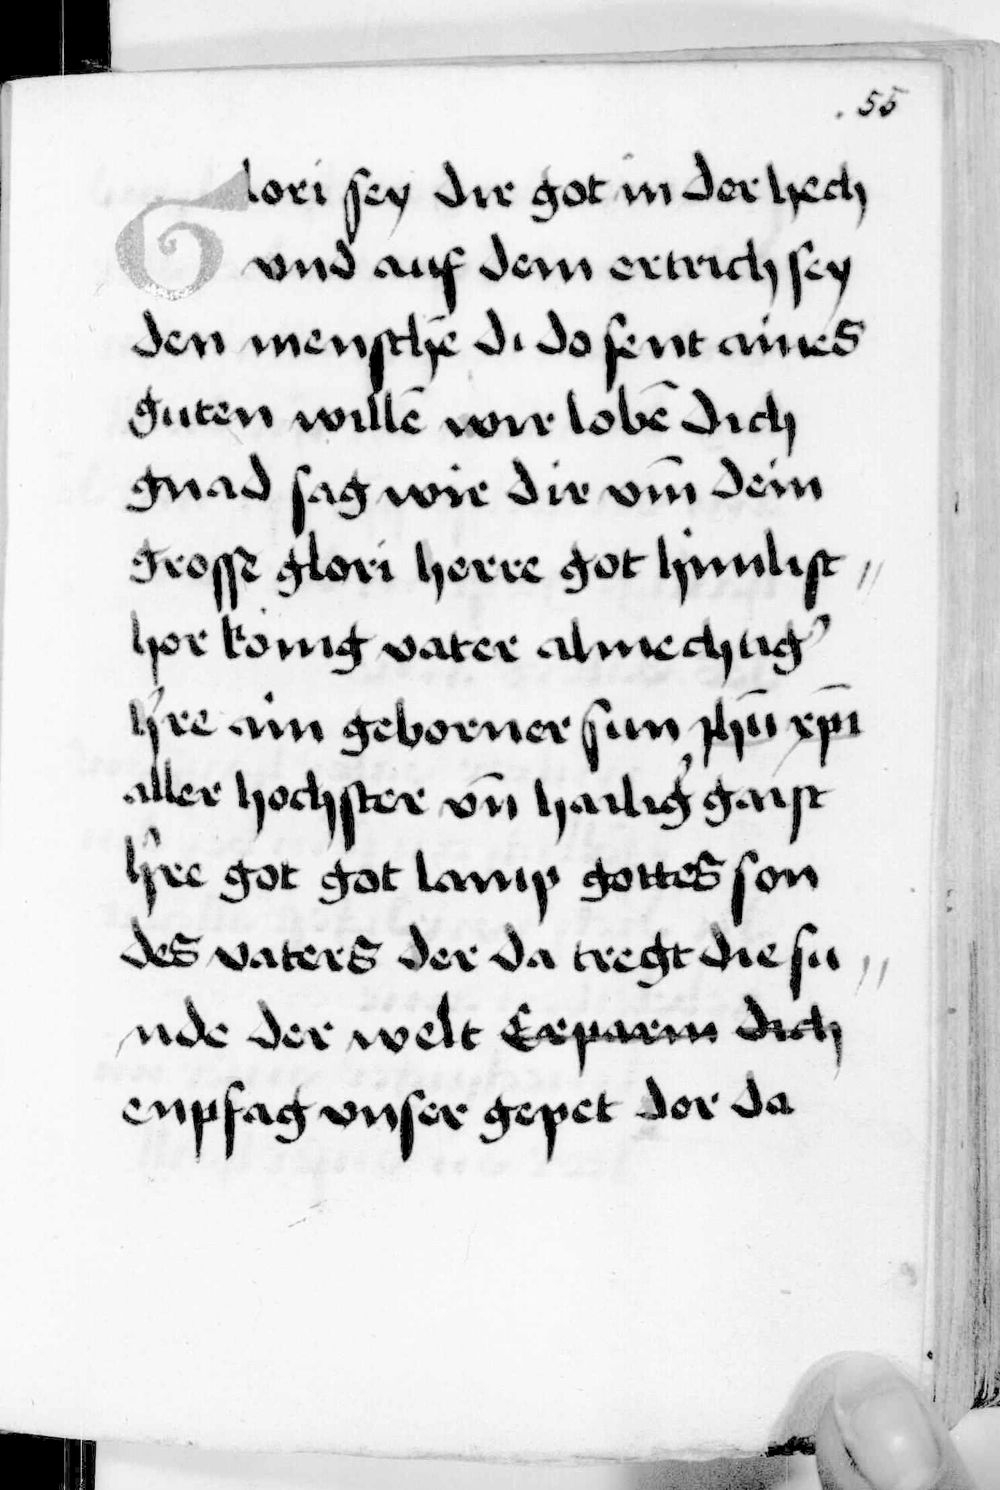 55
Glori sey dir got in der hech
vnd auf dem ertrich sey
den mensche̅ di do sent aines
guten wille̅ wir lobe̅ dich
gnad sag wir dir vm̅ dein
grosse glori herre got himlist //
hor konig vater almechtig̾
h̾re ain geborner sun jhu̅ xp̅i
aller hochster vn̅ hailig̾ gaist
h̾re got got lamp gottes son
des vaters der da tregt die su //
nde der welt Erparm dich
enpfag vnser gepet der da